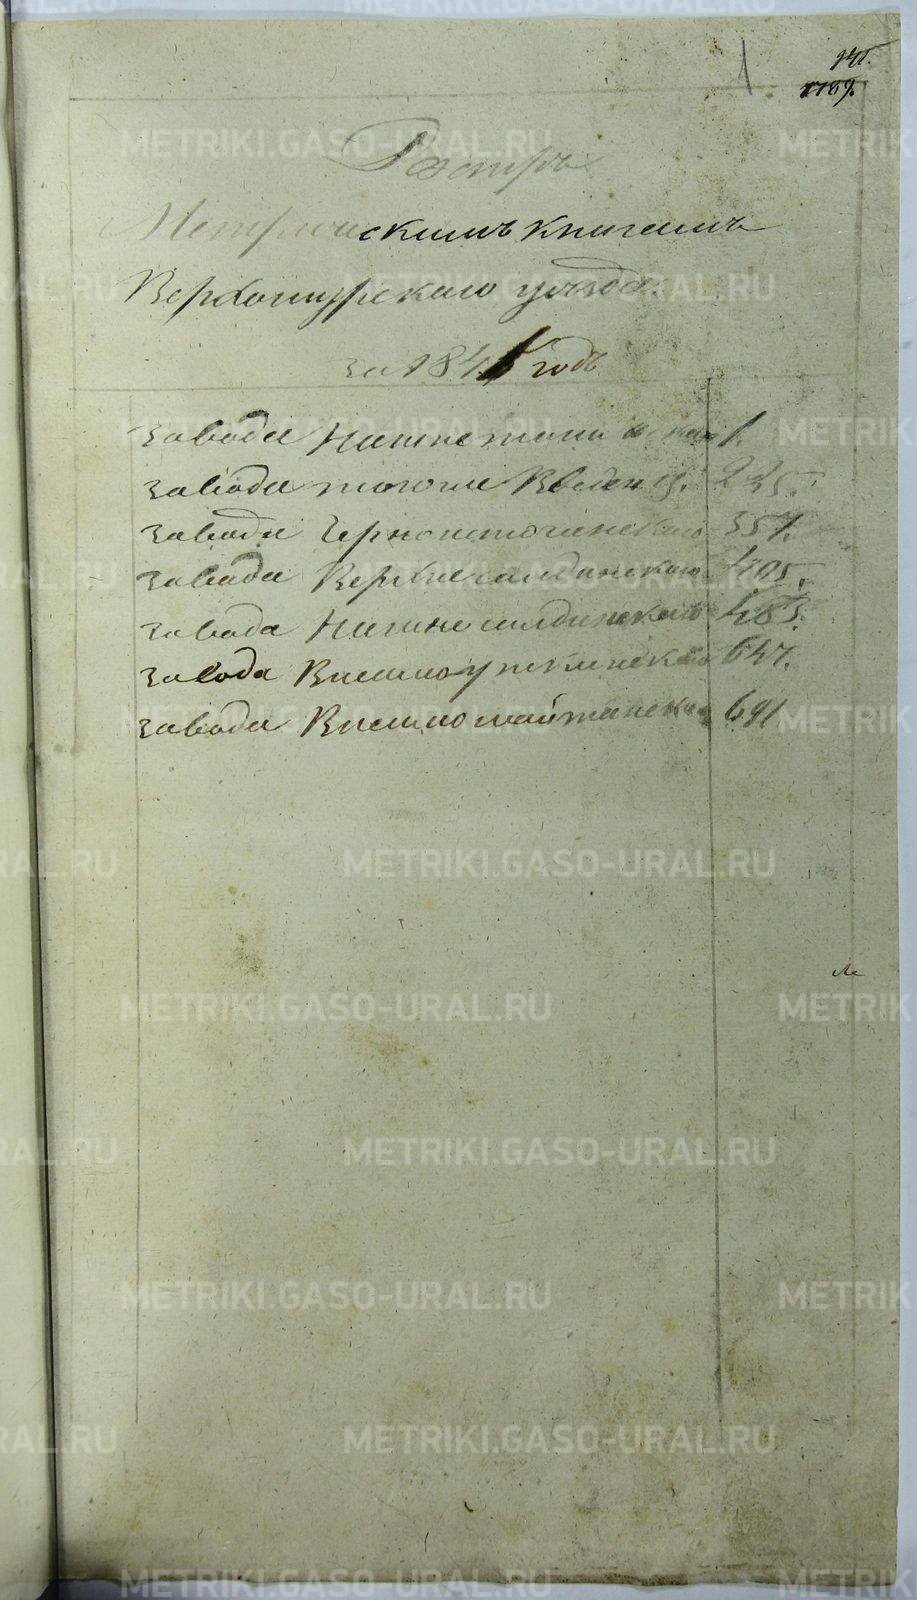 1
Реэстръ
Метрическимъ книгамъ
Верхотурскаго уѣзда.
за 184 годъ
завода Нижнетагильскаго 1.
завода тогоже Введен ц. 225.
завода Черноисточинскаго 357.
завода Верхнесалдинскаго 405.
завода Нижнесалдинскаго 483.
завода Висимоуткинскаго 647.
завода Висимошайтанскаго 691
METRIKI.GASO-URAL.RU